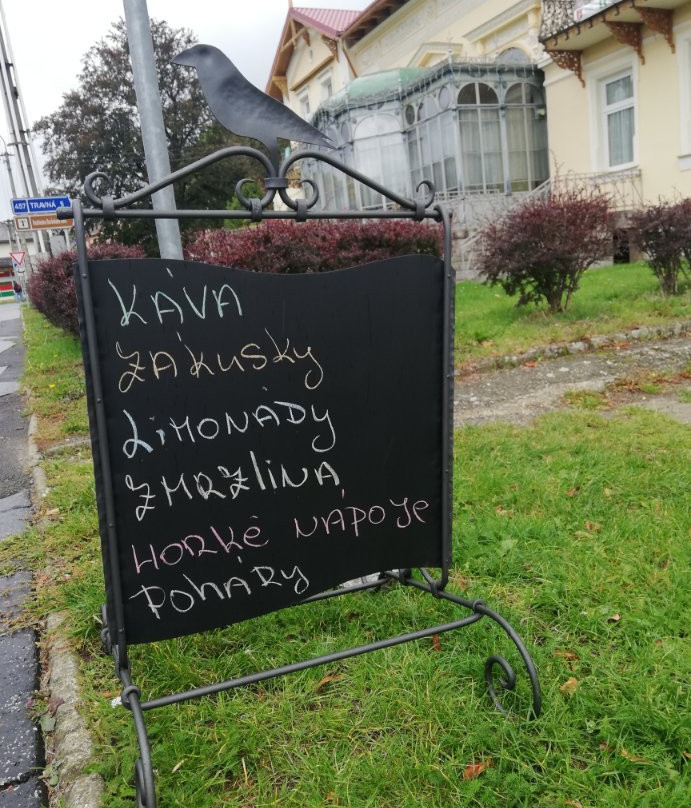 457 TRAVNÁ 5
KÁVA
ZÁKUSKY
LIMONÁDY
ZMRZLINA
HORKÉ NÁPOJE
POHÁRY